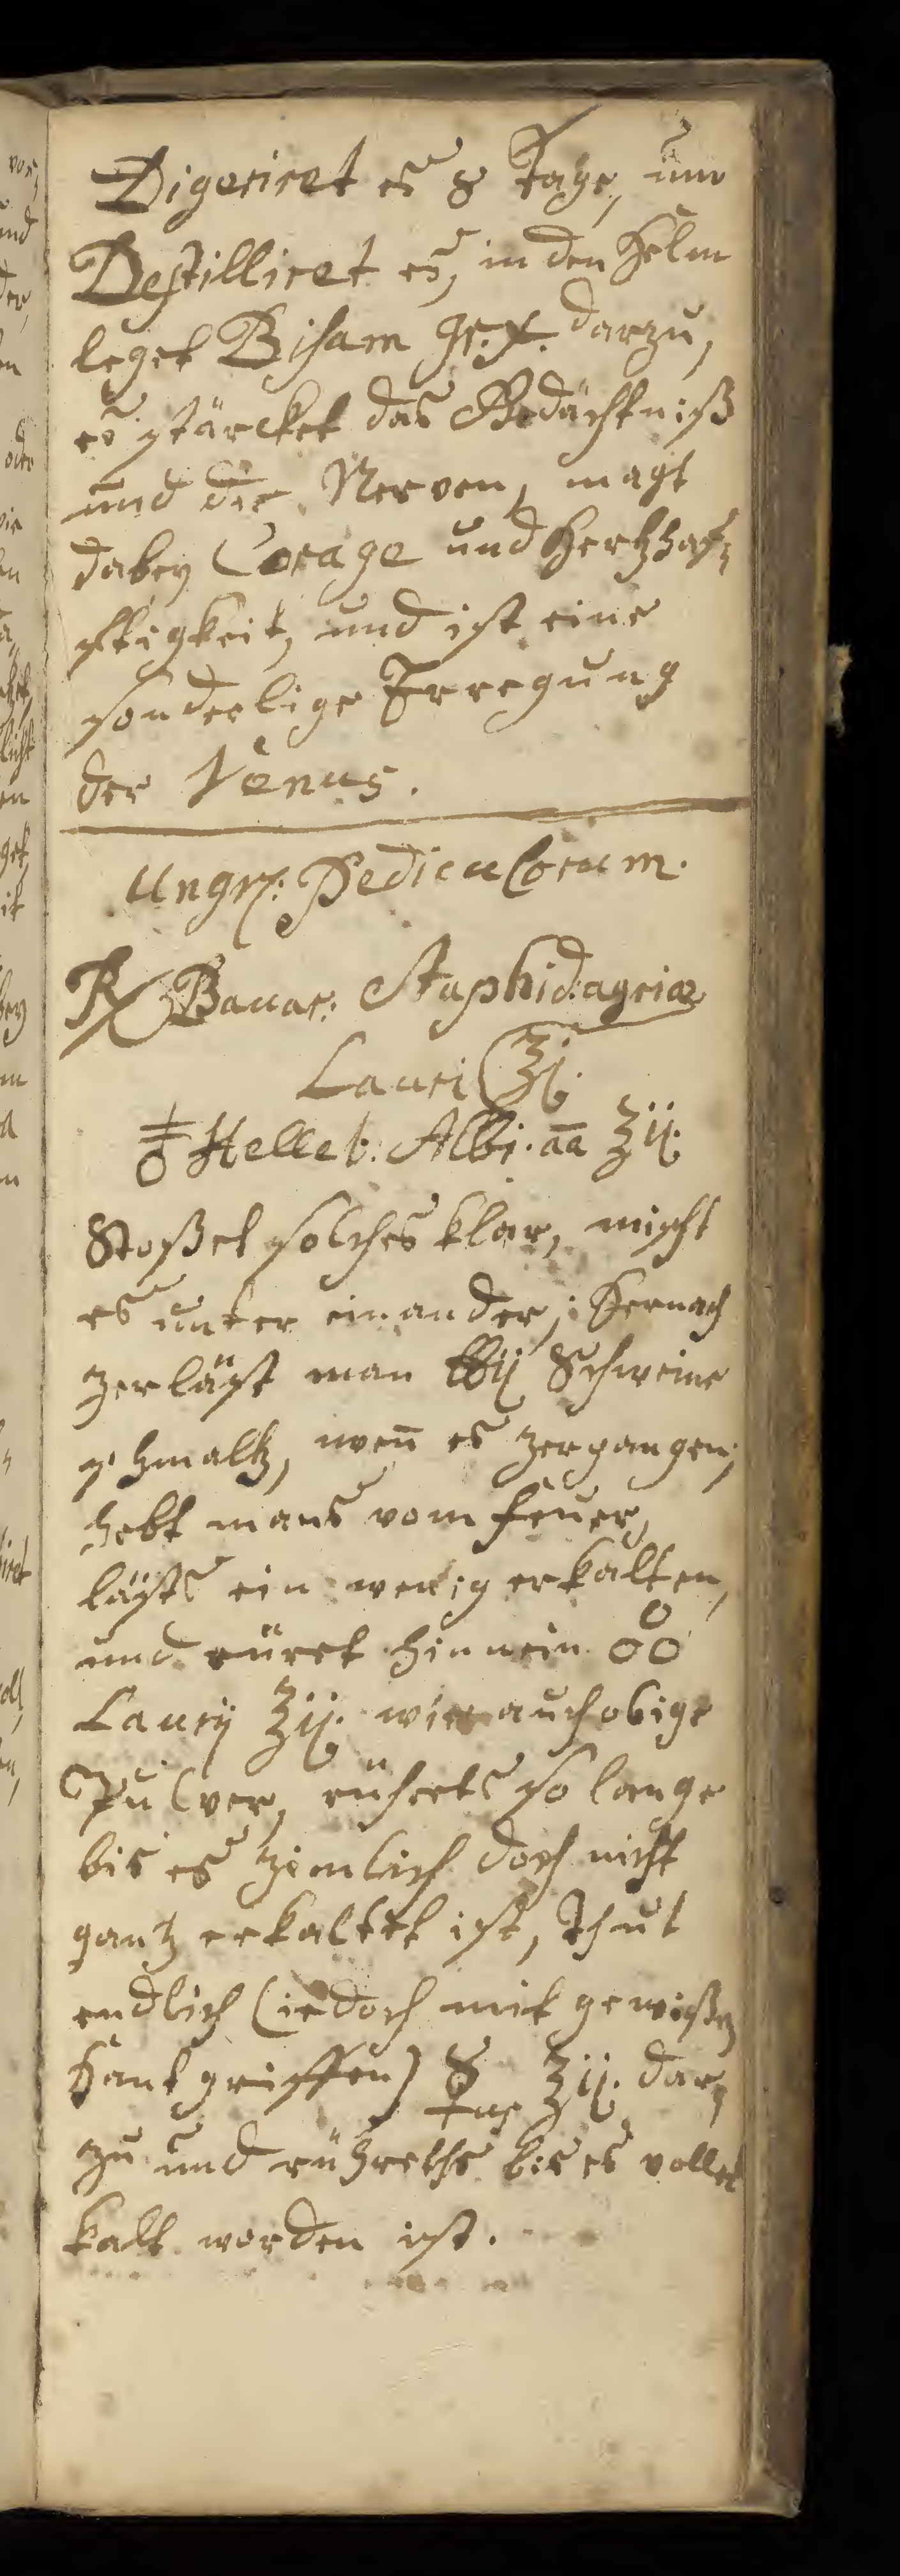 Digeriret es 8 Tage, und
Destilliret es, in den Helm
leget Bisam gr. X. darzu,
es stärcket das Gedächtniß
und die Nerven, magt
dabey Corage und Hertzhaf=
ftigkeit, und ist eine
sonderlige Erregung
der Venus.
Ungv: Pediculorum.
℞ Baccar: Staphid: agriæ
Lauri ℥j.
Helleb: Albi. aa ℥ij.
Stoßet solches klar, mischt
es unter einander, Hernach
zerläst man ℔ij Schweine
schmaltz, wen̄ es zergangen,
hebt mans vom feuer,
läßts ein wenig erkalten,
und rüret hinnein
Laurij ℥ij. wie auch obige
Pulver, rühretts so lange
bis es zimlich doch nicht
gantz erkaltet ist, Thut
endlich (iedoch mit gewißen
Hant griffen) ☿ ℥ij. dar=
zu und rühreths bis es vollet
kalt worden ist.